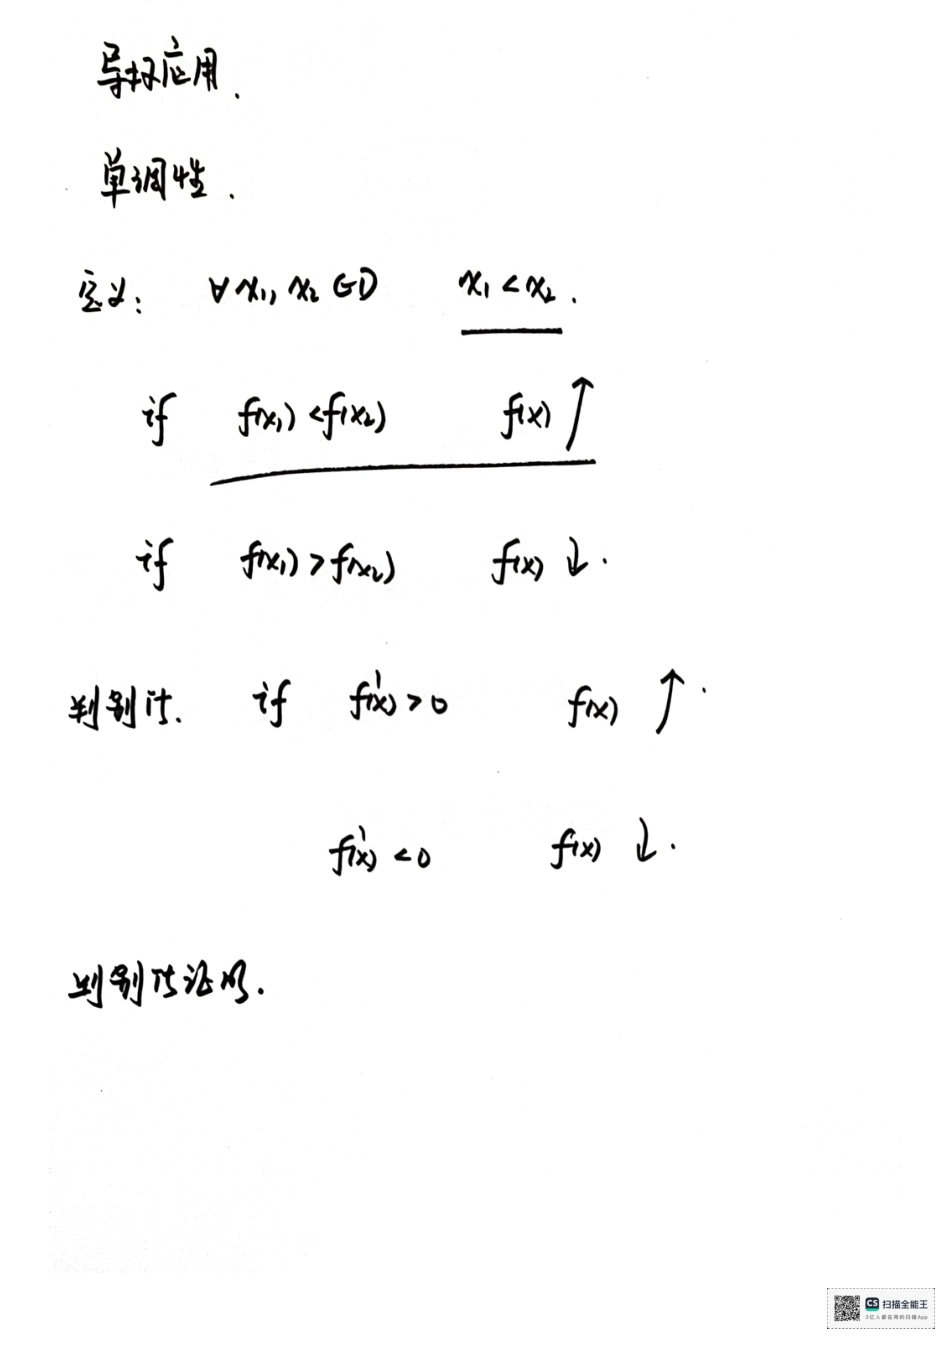 导数应用.
单调性.
定义: ∀x₁, x₂ ∈ D x₁ < x₂.
if f(x₁) < f(x₂) f(x) ↑
if f(x₁) > f(x₂) f(x) ↓.
判别法. if f'(x) > 0 f(x) ↑.
f'(x) < 0 f(x) ↓.
判别法证明.
CS 扫描全能王
3亿人都在用的扫描App